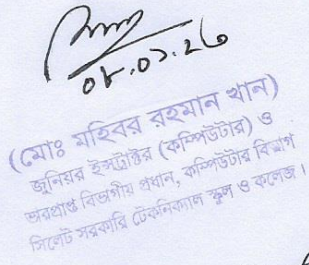 ০৮.০১.২৩
(মোঃ মহিবর রহমান খান)
জুনিয়র ইন্সট্রাক্টর (কম্পিউটার) ও
ভারপ্রাপ্ত বিভাগীয় প্রধান, কম্পিউটার বিভাগ
সিলেট সরকারি টেকনিক্যাল স্কুল ও কলেজ।